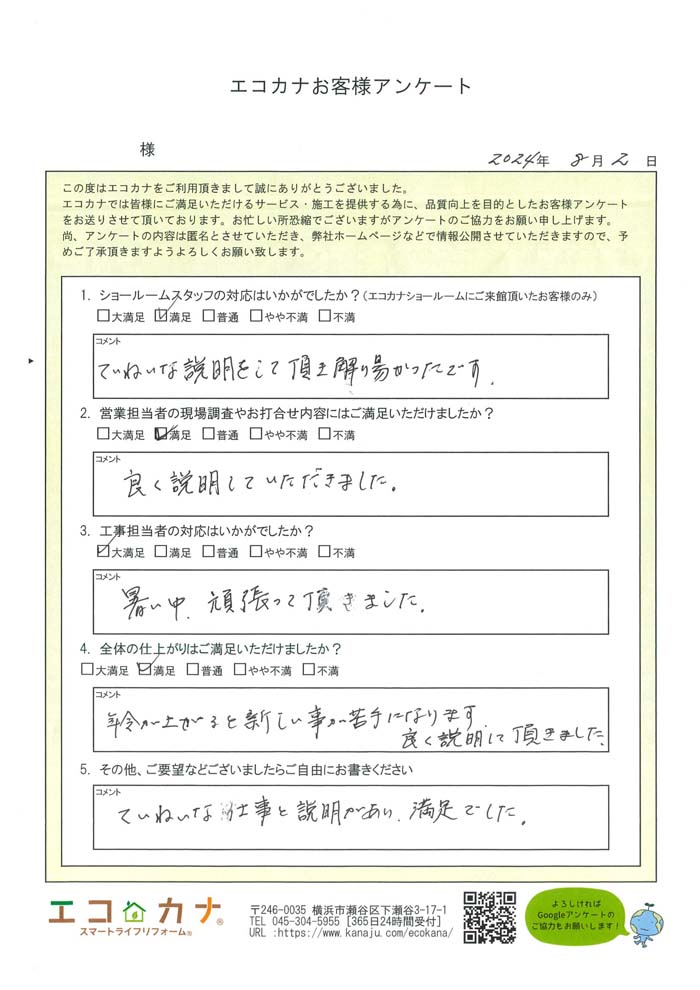 エコカナお客様アンケート
様
2024年 8月 2日
この度はエコカナをご利用頂きまして誠にありがとうございました。
エコカナでは皆様にご満足いただけるサービス・施工を提供する為に、品質向上を目的としたお客様アンケート
をお送りさせて頂いております。お忙しい所恐縮でございますがアンケートのご協力をお願い申し上げます。
尚、アンケートの内容は匿名とさせていただき、弊社ホームページなどで情報公開させていただきますので、予
めご了承頂きますようよろしくお願い致します。
1. ショールームスタッフの対応はいかがでしたか？(エコカナショールームにご来館頂いたお客様のみ)
□大満足 ☑満足 □普通 □やや不満 □不満
コメント
ていねいな説明をして頂き解り易かったです.
2. 営業担当者の現場調査やお打合せ内容にはご満足いただけましたか？
□大満足 ☑満足 □普通 □やや不満 □不満
コメント
良く説明していただきました。
3. 工事担当者の対応はいかがでしたか？
☑大満足 □満足 □普通 □やや不満 □不満
コメント
暑い中、頑張って頂きました。
4. 全体の仕上がりはご満足いただけましたか？
□大満足 ☑満足 □普通 □やや不満 □不満
コメント
年令が上がると新しい事が苦手になります
良く説明して頂きました、
5. その他、ご要望などございましたらご自由にお書きください
コメント
ていねいな仕事と説明があり、満足でした。
エコカナ®
スマートライフリフォーム®
〒246-0035 横浜市瀬谷区下瀬谷3-17-1
TEL 045-304-5955 [365日24時間受付]
URL :https://www.kanaju.com/ecokana/
よろしければ
Googleアンケートの
ご協力もお願いします！